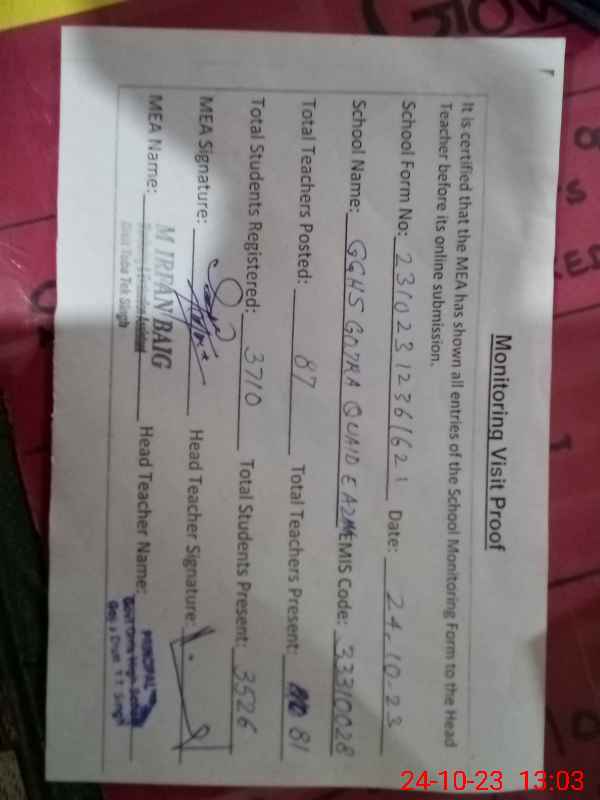 Monitoring Visit Proof
It is certified that the MEA has shown all entries of the School Monitoring Form to the Head
Teacher before its online submission.
School Form No: 23102312361621 Date: 24.10.23
School Name: GGHS GOJRA QUAID E AZAM EMIS Code: 33310028
Total Teachers Posted: 87 Total Teachers Present: 81
Total Students Registered: 3710 Total Students Present: 3526
MEA Signature: Head Teacher Signature:
MEA Name: M IRFAN BAIG Head Teacher Name:
Distt Toba Tek Singh
PRINCIPAL
24-10-23 13:03